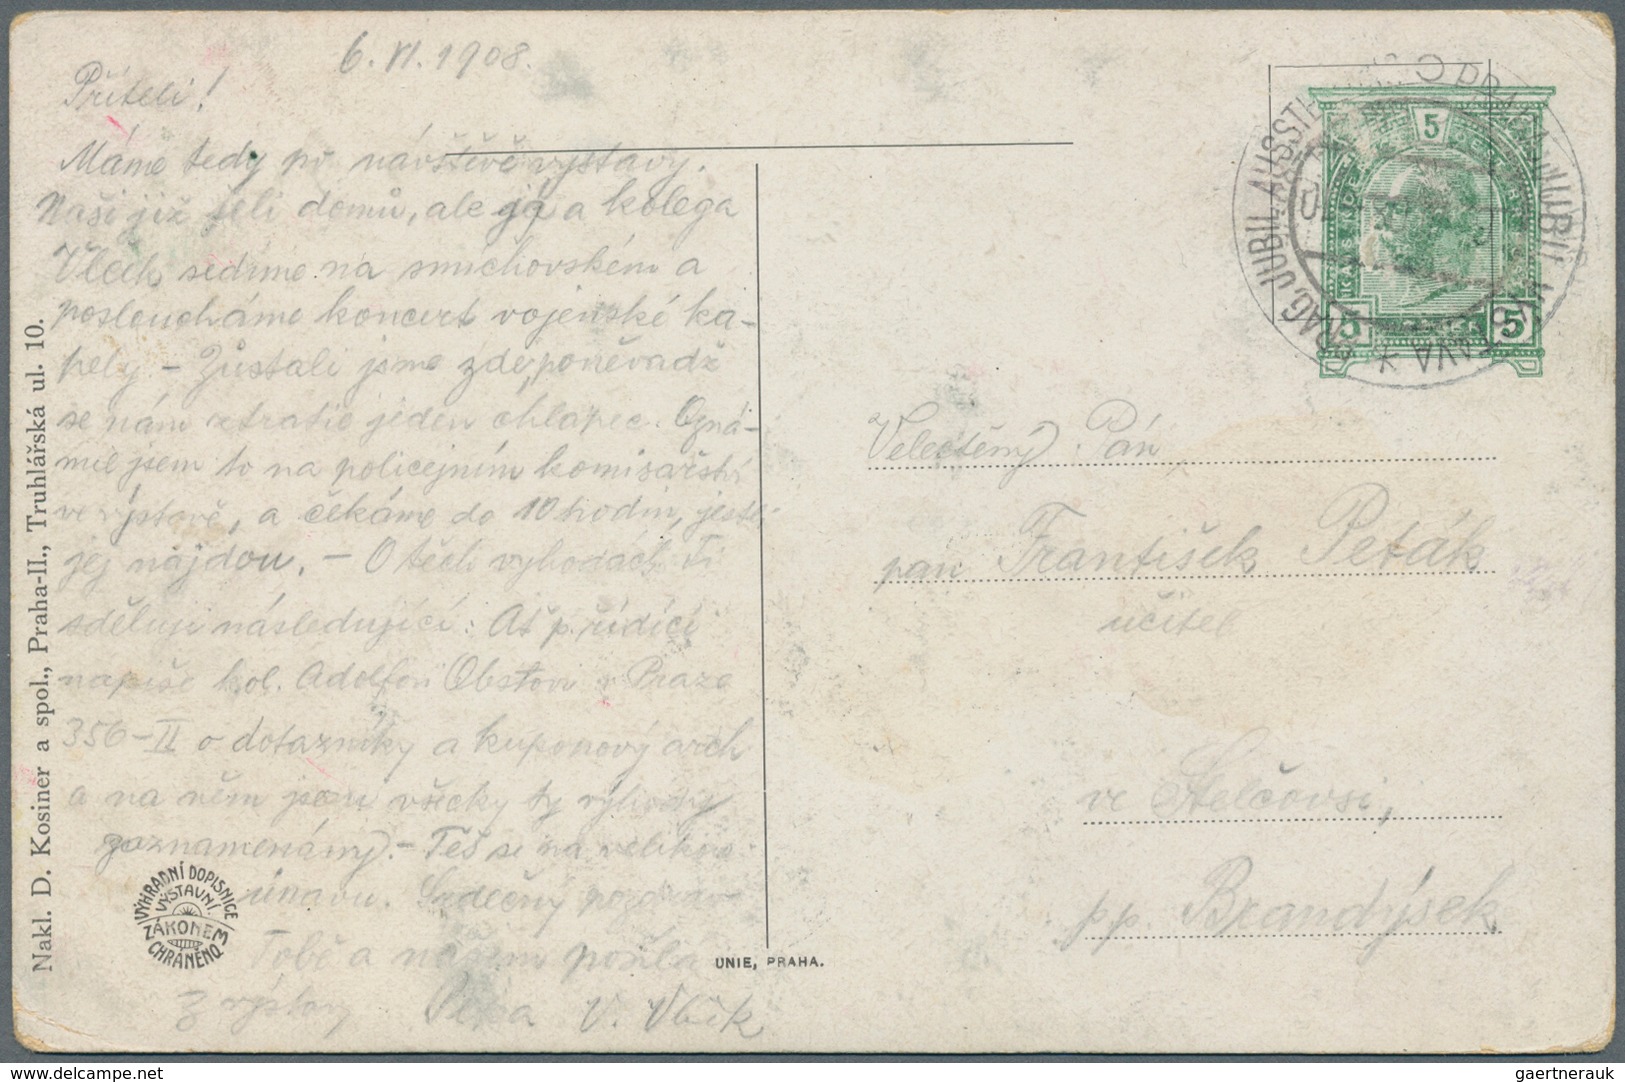 6. VI. 1908.
Příteli!
Máme tedy po návštěvě výstavy.
Naši již jeli domů, ale já a kolega
Vlček sedíme na smíchovském a
posloucháme koncert vojenské ka-
pely – Zůstali jsme zde, poněvadž
se nám ztratil jeden chlapec. Ozná-
mil jsem to na policejním komisařství
ve výstavě, a čekáme do 10 hodin, jestli
jej najdou. – O těch výhodách Ti
sděluji následující: Ať p. řídící
napíše kol. Adolfovi v Praze
356–II o dotazníky a kuponový arch
a na něm jsou všecky ty výhody
zaznamenány. – Těš se na velikou
únavu. Srdečný pozdrav
Tobě a našim
Z výstavy Pepa V. Vlček
Nakl. D. Kosiner a spol., Praha-II., Truhlářská ul. 10.
VÝHRADNÍ DOPISNICE
VÝSTAVNÍ
ZÁKONEM
CHRÁNĚNO
UNIE, PRAHA.
5
5 5
PRAG, JUBIL. AUSSTELLUNG
VÝSTAVA *
Velectěný Pán
pan František Peták
učitel
ve
pp. Brandýsek
gaertnerauk
www.delcampe.net